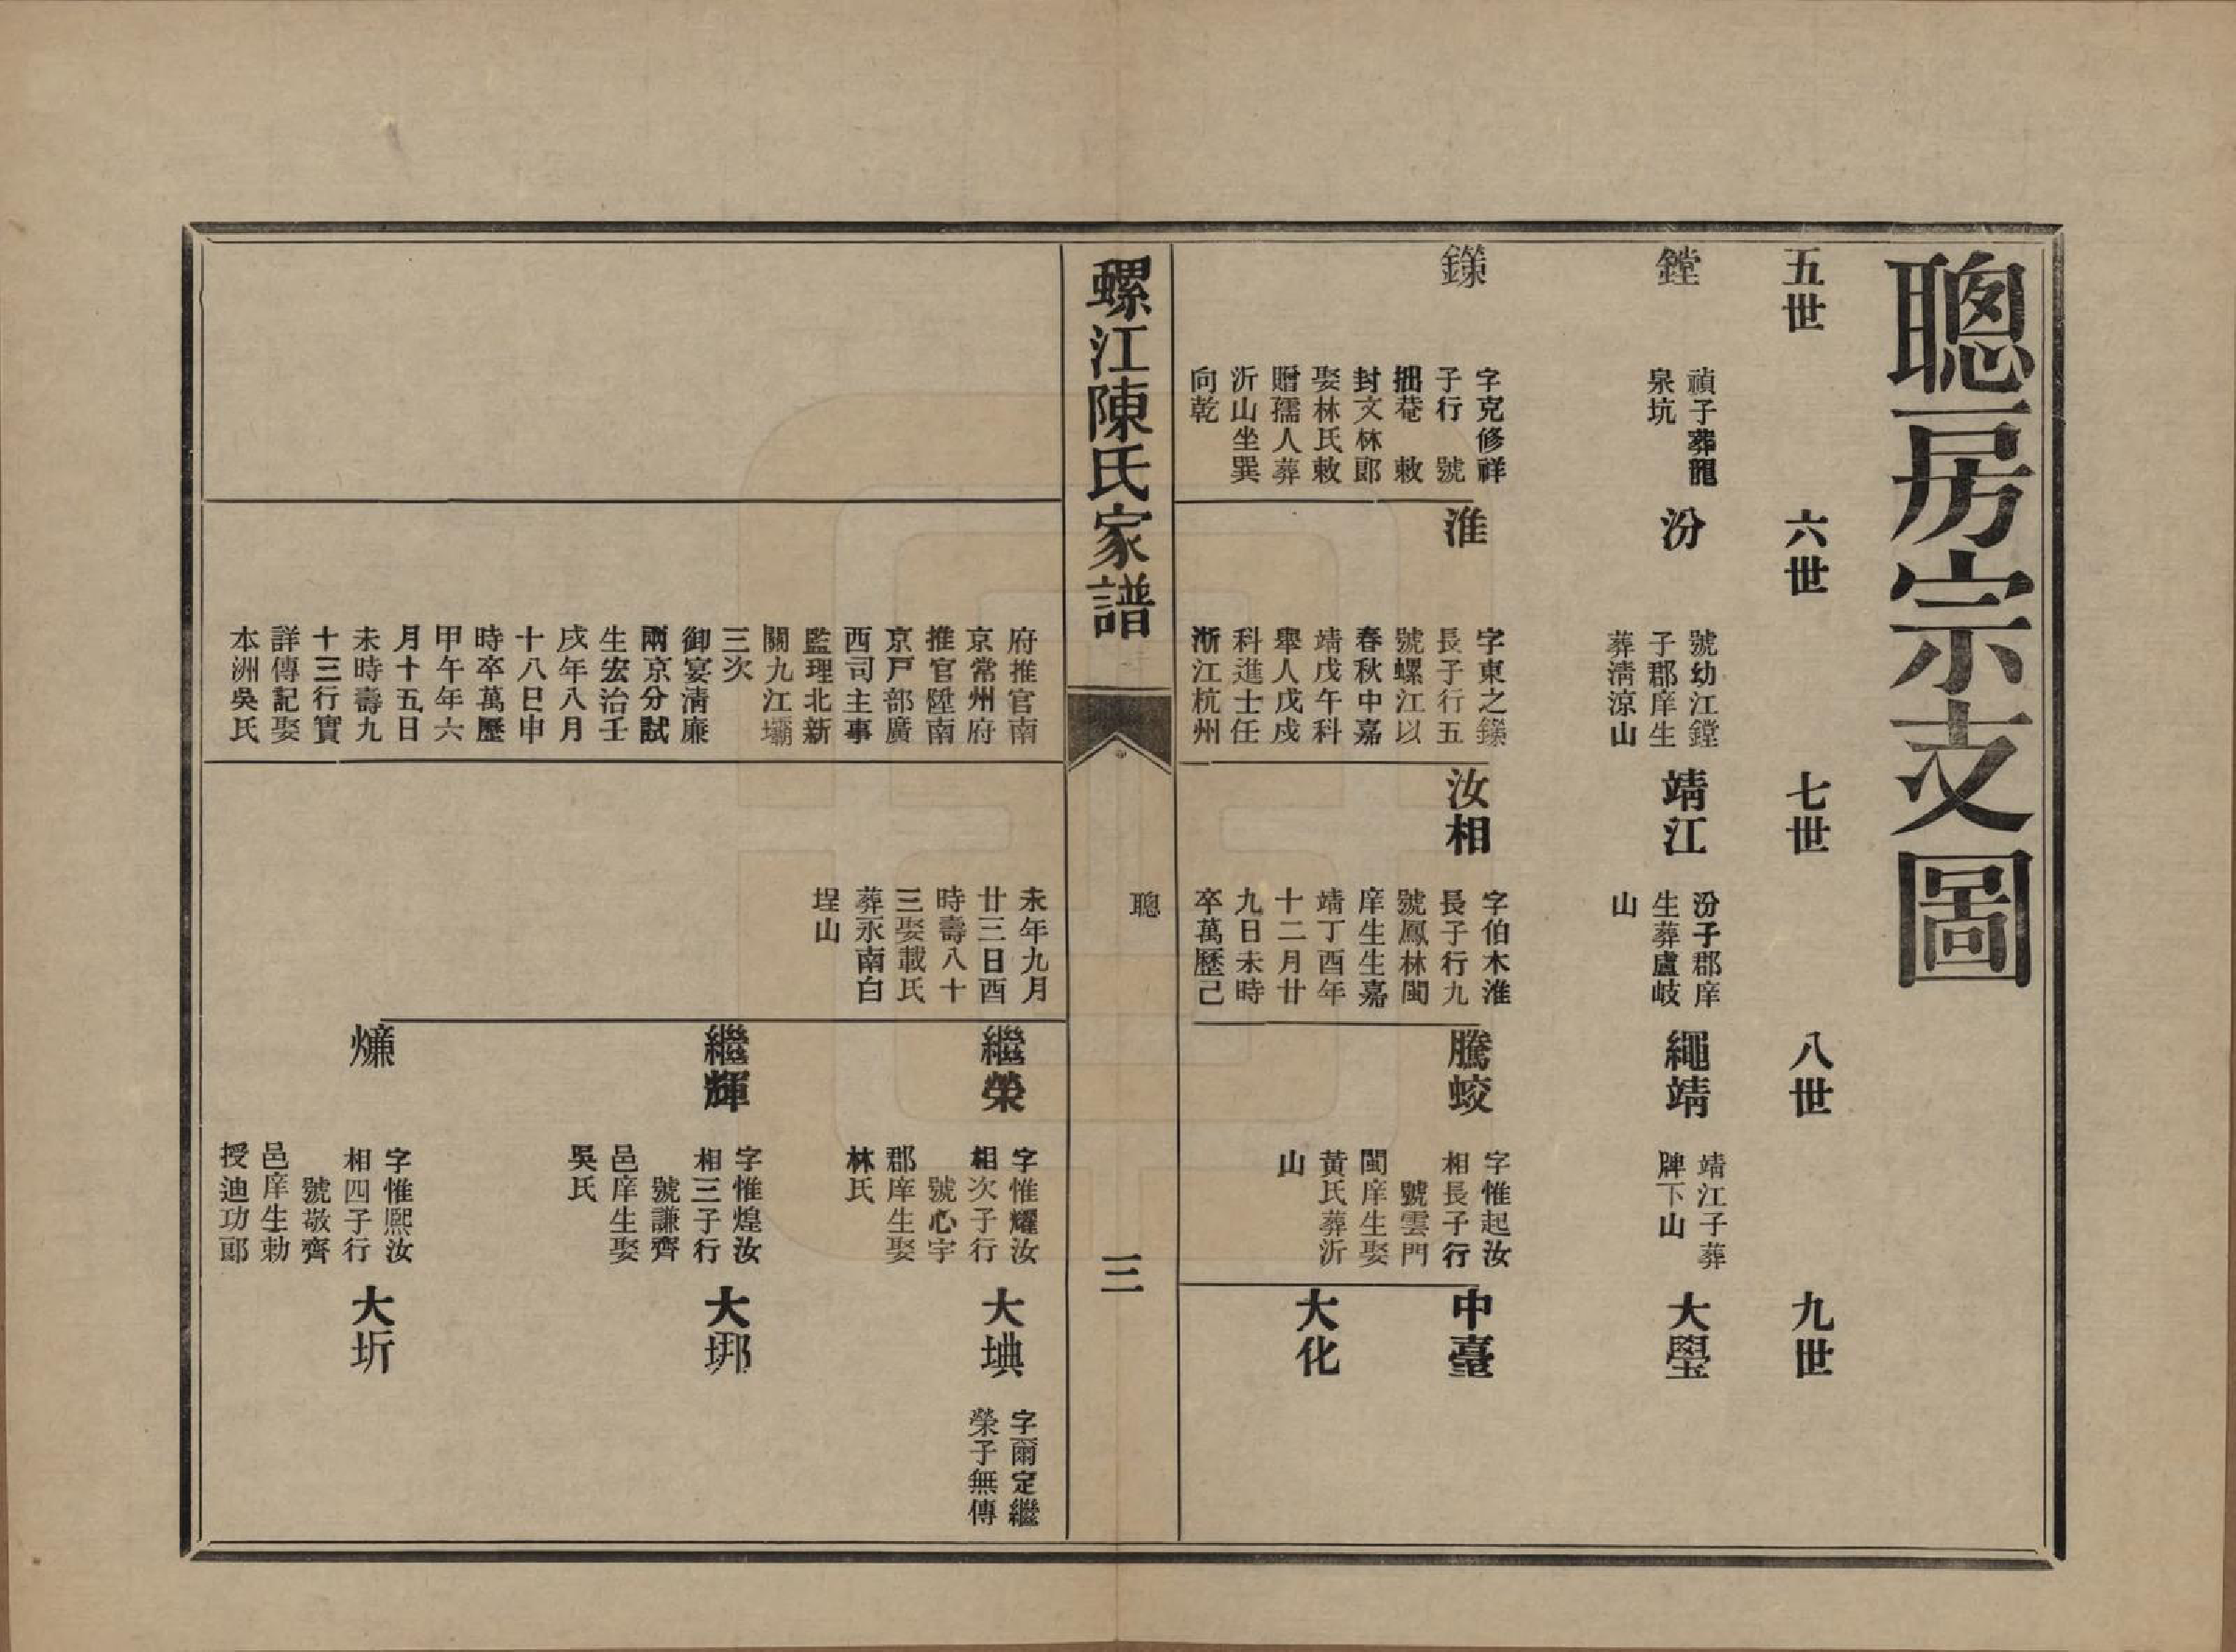 聰房宗支圖
五世
六世
七世
八世
九世
鏜
禎子葬龍
泉坑
汾
號幼江鏜
子郡庠生
葬清涼山
靖江
汾子郡庠
生葬盧岐
山
繩靖
靖江子葬
牌下山
大璺
鏴
字克修祥
子行 號
拙菴 敕
封文林郎
娶林氏敕
贈孺人葬
沂山坐巽
向乾
淮
字東之鏴
長子行五
號螺江以
春秋中嘉
靖戊午科
舉人戊戌
科進士任
浙江杭州
汝相
字伯木淮
長子行九
號鳳林閩
庠生生嘉
靖丁酉年
十二月廿
九日未時
卒萬歷己
騰蛟
字惟起汝
相長子行
號雲門
閩庠生娶
黃氏葬沂
山
中臺
大化
螺江陳氏家譜
聰
三
府推官南
京常州府
推官陞南
京戸部廣
西司主事
監理北新
關九江壩
三次
御宴清廉
兩京分試
生宏治壬
戌年八月
十八日申
時卒萬歷
甲午年六
月十五日
未時壽九
十三行實
詳傳記娶
本洲吳氏
未年九月
廿三日酉
時壽八十
三娶載氏
葬永南白
埕山
繼榮
字惟耀汝
相次子行
號心宇
郡庠生娶
林氏
大㙉
字爾定繼
榮子無傳
繼輝
字惟煌汝
相三子行
號謙齊
邑庠生娶
吳氏
大垹
熑
字惟熙汝
相四子行
號敬齊
邑庠生勅
授迪功郎
大圻